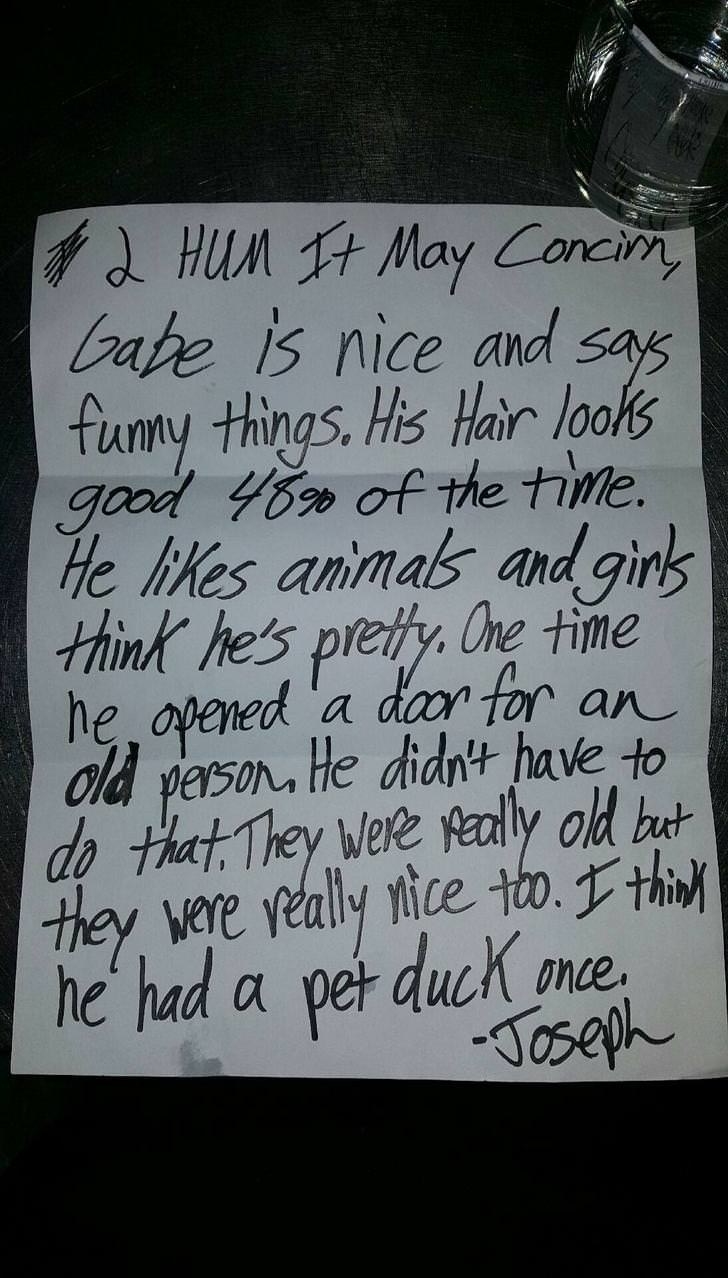 2 HUM It May Concirn,
Gabe is nice and says
funny things. His Hair looks
good 48% of the time.
He likes animals and girls
think he's pretty. One time
he opened a door for an
old person. He didn't have to
do that. They were really old but
they were really nice too. I think
he had a pet duck once.
-Joseph